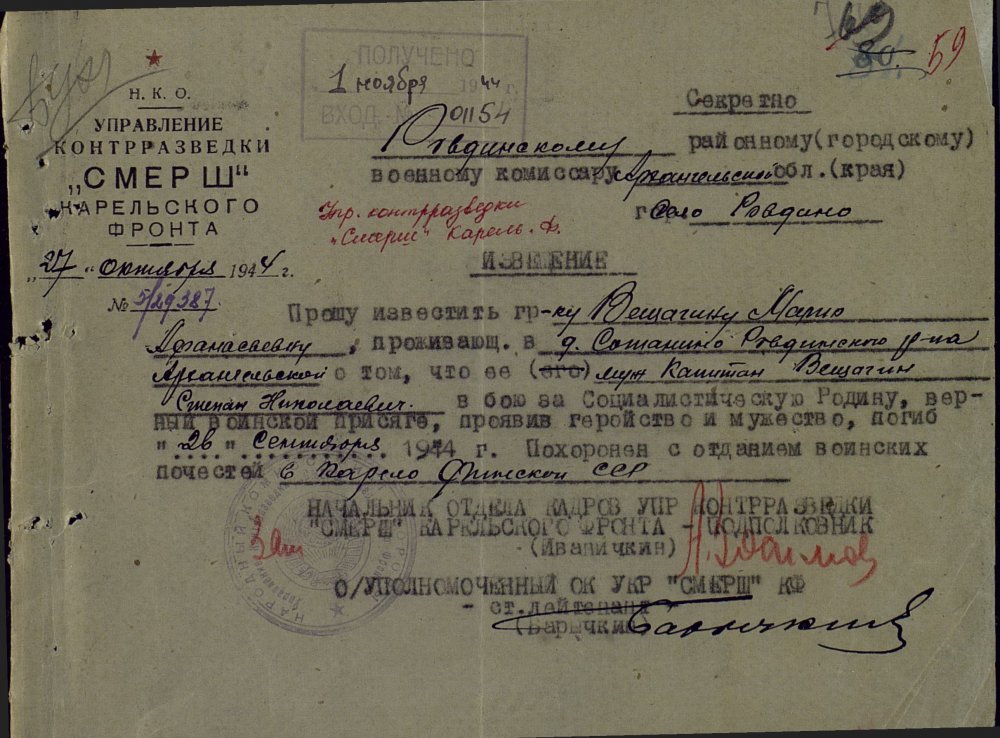 60
80.
59
Н. К. О.
УПРАВЛЕНИЕ
КОНТРРАЗВЕДКИ
„СМЕРШ"
КАРЕЛЬСКОГО
ФРОНТА
„27" октября 1944 г.
№ 5/29387.
ПОЛУЧЕНО
1 ноября 1944 г.
ВХОД. № 01154
Секретно
Ровдинскому районному(городскому)
военному комиссару Архангельской обл.(края)
село Ровдино
Упр. контрразведки
"Смерш" Карель. Ф.
ИЗВЕЩЕНИЕ
Прошу известить гр-ку Вещагину Марию
Афанасьевну, проживающ. в д. Соталино Ровдинского р-на
Архангельской о том, что ее (его) муж Капитан Вещагин
Степан Николаевич. в бою за Социалистическую Родину, вер-
ный воинской присяге, проявив геройство и мужество, погиб
"26" Сентября 1944 г. Похоронен с отданием воинских
почестей в Карело Финской ССР
НАЧАЛЬНИК ОТДЕЛА КАДРОВ УПР КОНТРРАЗВЕДКИ
"СМЕРШ" КАРЕЛЬСКОГО ФРОНТА - ПОДПОЛКОВНИК
(Иваничкин)
О/УПОЛНОМОЧЕННЫЙ ОК УКР "СМЕРШ" КФ
- ст.лейтенант
(Барычкин)